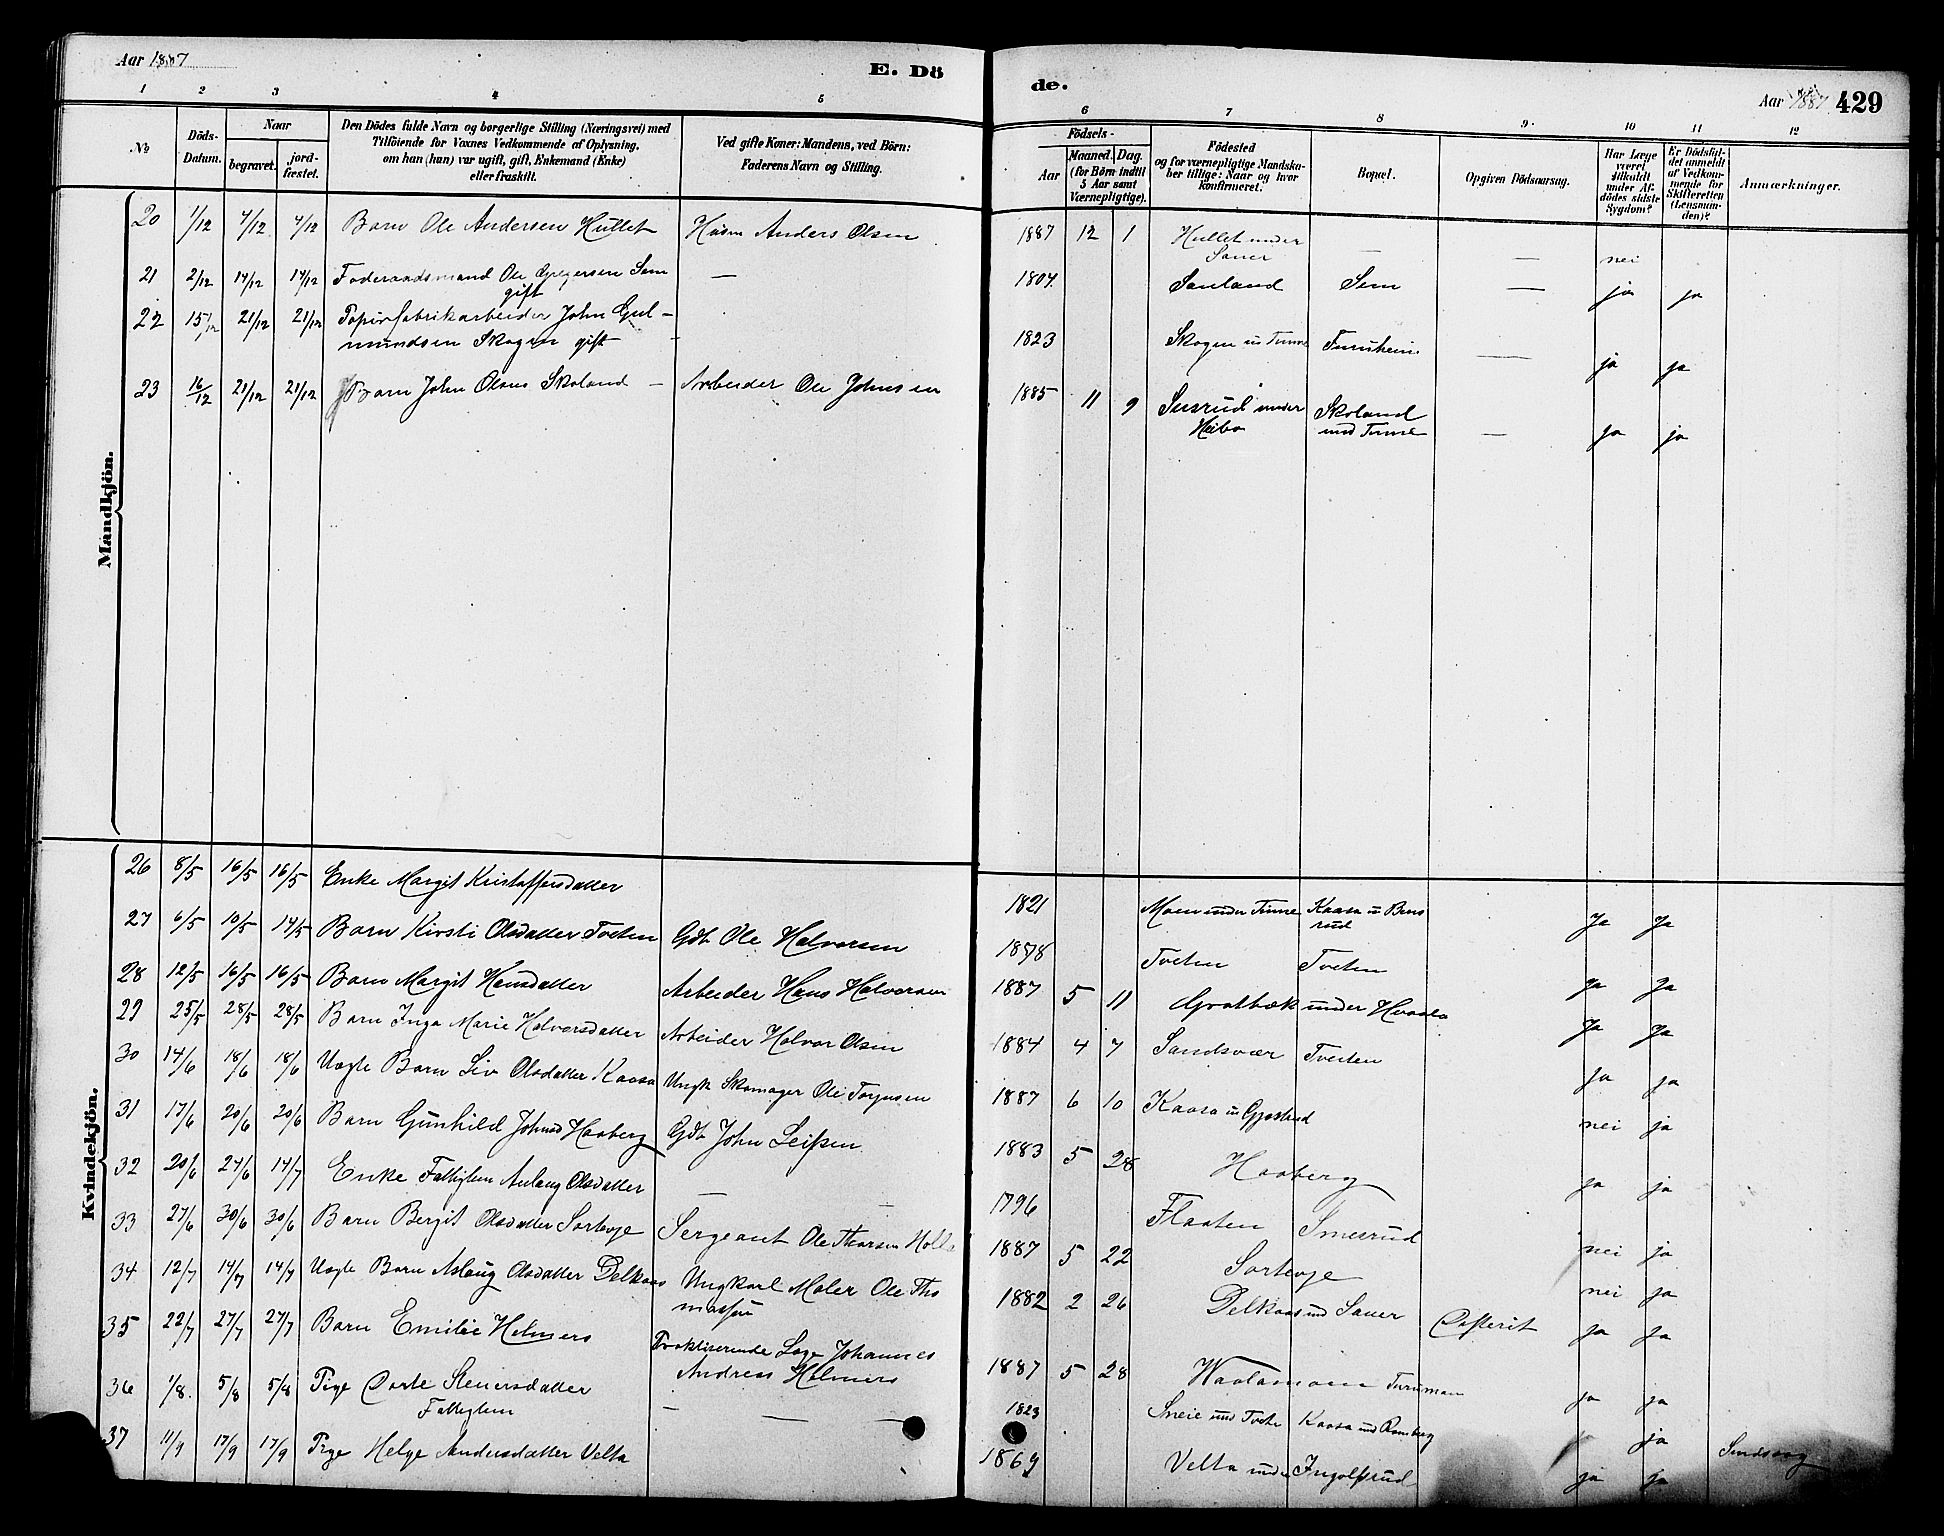 Aar 1887
E. Dö
de.
Aar 1887 429
1 2 3 4 5 6 7 8 9 10 11 12
No
Döds-Datum.
Naar
begravet.
jord-fæstet.
Den Dödes fulde Navn og borgerlige Stilling (Næringsvei) med
Tilföiende for Voxnes Vedkommende af Oplysning,
om han (hun) var ugift, gift, Enkemand (Enke)
eller fraskilt.
Ved gifte Koner: Mandens, ved Börn:
Faderens Navn og Stilling.
Födsels-
Aar
Maaned. Dag.
(for Börn indtil
5 Aar samt
Værnepligtige).
Födested
og for værnepligtige Mandska-
ber tillige: Naar og hvor
konfirmeret.
Bopæl.
Opgiven Dödsaarsag.
Har Læge
været
tilkaldt
under Af-
dödes sidste
Sygdom?
Er Dödsfal-
det anmeldt
af Vedkom-
mende for
Skifteretten
(Lensman-
den)?
Anmærkninger.
Mandkjön.
20 1/12 7/12 7/12 Barn Ole Andersen Hullet Husm Anders Olsen 1887 12 1 Hullet under — — nei
Sauer
21 2/12 14/12 14/12 Foderaadsmand Ole Gregersen Sem — 1804 Sauland Sem — ja ja
gift
22 15/12 21/12 21/12 Papirfabrikarbeider John Gul-
mundsen Skogen gift - 1823 Skogen u Tinne Furuheim — ja ja
23 16/12 21/12 21/12 Barn John Olaus Skoland — Arbeider Ole Johnsen 1885 11 9 Susrud under Skoland — ja ja
Heibø und Tinne
Kvindekjön.
26 8/5 16/5 16/5 Enke Margit Kristoffersdatter 1821 Moen under Tinne Kaasa u Bens ja ja
rud
27 6/5 10/5 14/5 Barn Kirsti Olsdatter Tveten Gdb Ole Halvorsen 1878 Tveten Tveten ja ja
28 12/5 16/5 16/5 Barn Margit Hansdatter Arbeider Hans Halvorsen 1887 5 11 Grotbæk under ja ja
29 25/5 28/5 28/5 Barn Inga Marie Halvorsdatter Arbeider Halvor Olsen 1884 4 7 Sandsvær Tveten ja ja
30 14/6 18/6 18/6 Uægte Barn Liv Olsdatter Kaasa Ungk Skomager Ole Torjusen 1887 6 10 Kaasa u nei ja
31 17/6 20/6 20/6 Barn Gunhild Johnsd Haaberg Gdb John Leifsen 1883 5 28 Haaberg ja ja
32 20/6 24/6 14/7 Enke Fattiglem Aslaug Olsdatter — 1796 Flaaten Smesrud nei ja
33 27/6 30/6 30/6 Barn Bergit Olsdatter Sortevje Sergeant Ole 1887 5 22 Sortevje nei ja
34 12/7 14/7 14/7 Uægte Barn Aslaug Olsdatter Delkaas Ungkarl Maler Ole Tho 1882 2 26 Delkaas und Sauer ja ja
massen
35 22/7 27/7 27/7 Barn Emilie Holmers Praktiserende Læge Johannes
Andreas Holmers 1887 5 28 ja ja
36 1/8 5/8 5/8 Pige Dorte Steinersdatter — — — 1823 Sneie und Tvete Kaasa und ja
Fattiglem
37 11/9 17/9 17/9 Pige Helge Andersdatter Velta 1869 Velta under Ingolfsrud ja ja